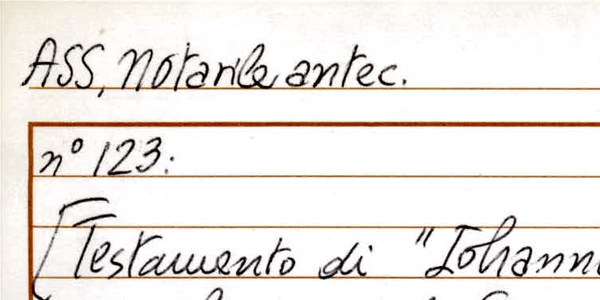 ASS, Notarile antec.
n° 123:
Testamento di "Iohann